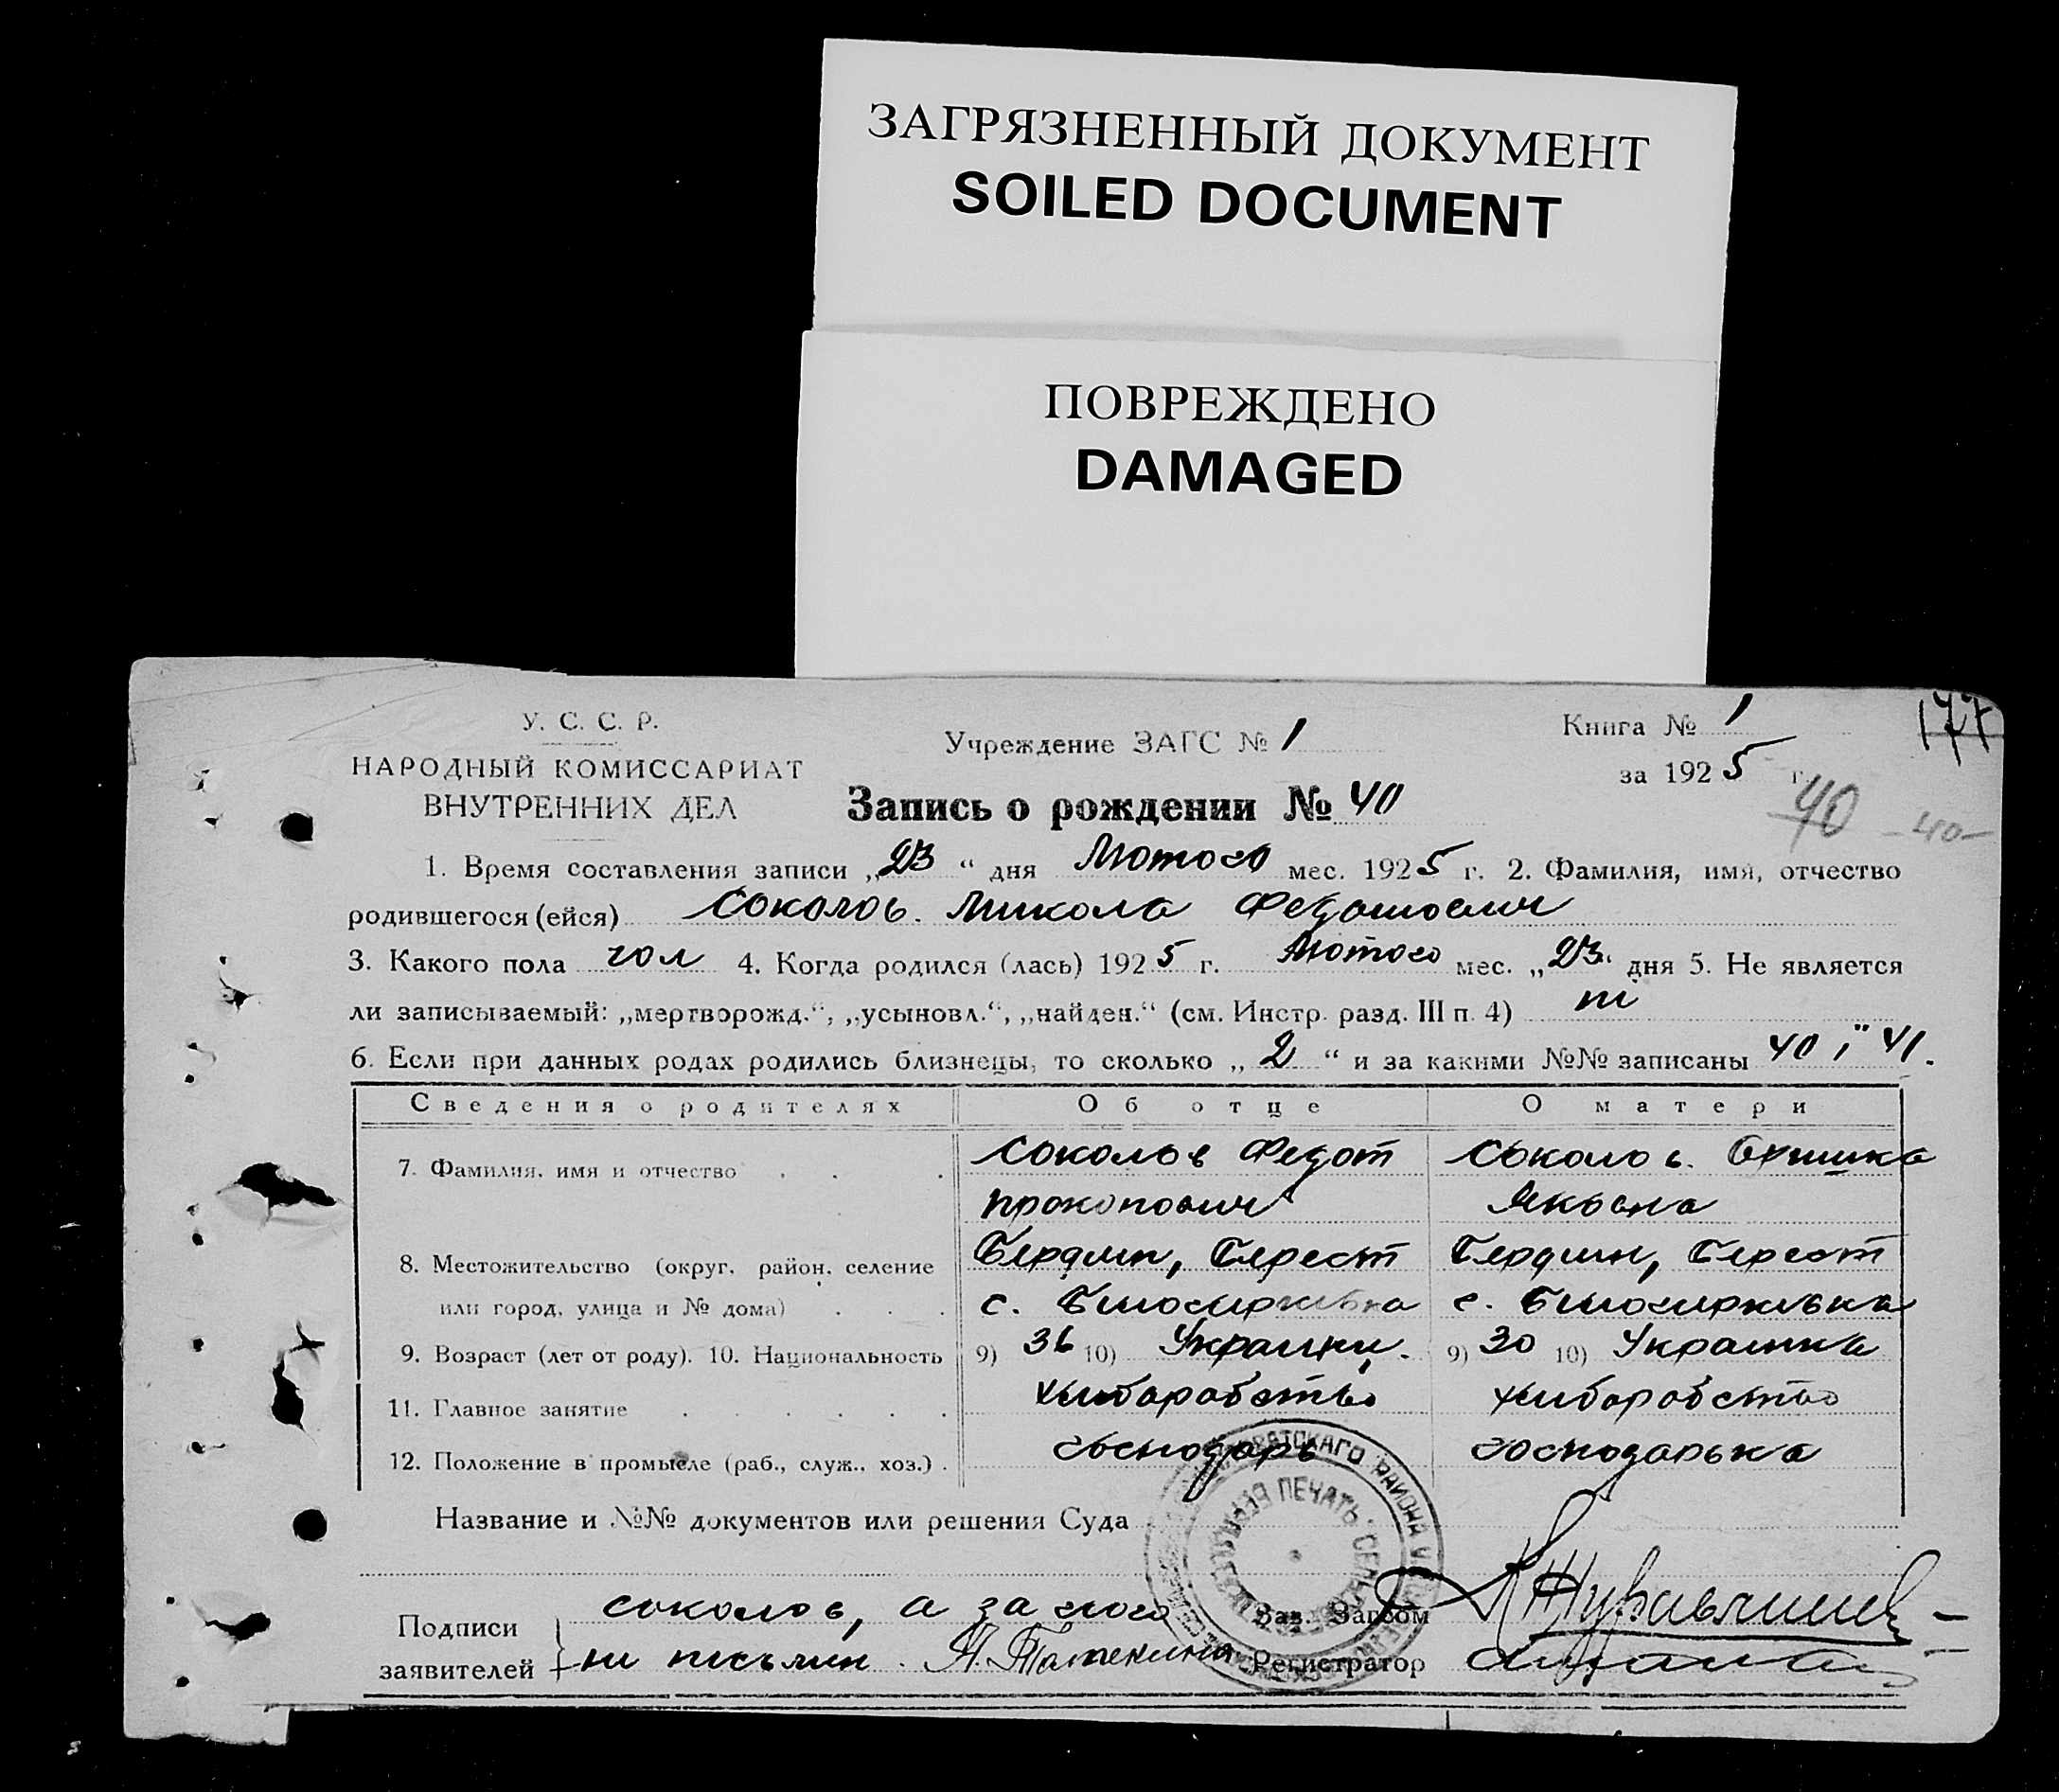 ЗАГРЯЗНЕННЫЙ ДОКУМЕНТ
SOILED DOCUMENT
ПОВРЕЖДЕНО
DAMAGED
177
У. С. С. Р.
НАРОДНЫЙ КОМИССАРИАТ
ВНУТРЕННИХ ДЕЛ
Учреждение ЗАГС № 1
Книга № 1
за 1925 г.
Запись о рождении № 40
40 -40-
1. Время составления записи „23“ дня Лютого мес. 1925 г. 2. Фамилия, имя, отчество
родившегося (ейся) Соколов. Микола Федотович
3. Какого пола чол 4. Когда родился (лась) 1925 г. Лютого мес. „23“ дня 5. Не является
ли записываемый: „мертворожд.“, „усыновл.“, „найден.“ (см. Инстр. разд. III п. 4) ні
6. Если при данных родах родились близнецы, то сколько „2“ и за какими №№ записаны 40 і 41.
Сведения о родителях Об отце О матери
7. Фамилия, имя и отчество Соколов Федот Соколов.
Прокопович Яковна
8. Местожительство (округ, район, селение Бердян, Берест Бердян, Берест
или город, улица и № дома) с. Білоциркивка с. Білоциркивка
9. Возраст (лет от роду). 10. Национальность 9) 36 10) 9) 30 10) Украинка
11. Главное занятие хлиборобство хлиборобство
12. Положение в промысле (раб., служ., хоз.) господарь господарька
Название и №№ документов или решения Суда
РАЙОНА
ПЕЧАТЬ
Подписи заявителей Соколов, а за його
не письмен.
Зав. Загсом
Регистратор